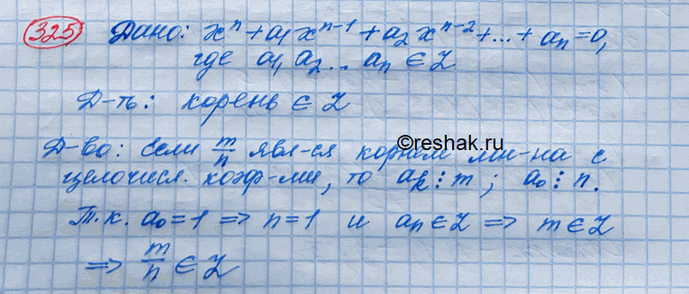 325 Дано: xⁿ + a₁ xⁿ⁻¹ + a₂ xⁿ⁻² + ... + aₙ = 0,
где a₁, a₂ .. aₙ ∈ Z
Д-ть: корень ∈ Z
©reshak.ru
Д-во: Если m/n явл-ся корнем мн-на с
целочисл. коэф-ми, то aₖ ⋮ m ; a₀ ⋮ n.
Т.к. a₀ = 1 ⇒ n = 1 и aₙ ∈ Z ⇒ m ∈ Z
⇒ m/n ∈ Z